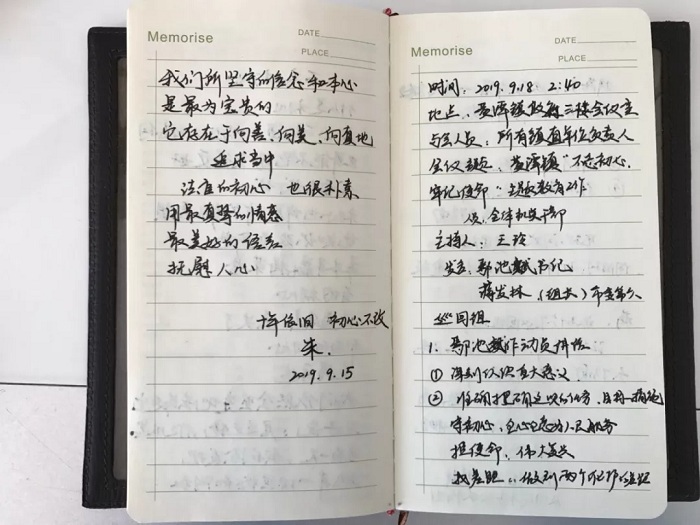 Memorise
DATE
PLACE
我们所坚守的信念和本心
是最为宝贵的
它存在于向善、向美、向真地
追求当中
法准的初心 也很朴素
用最真挚的情感
最美好的信念
抚慰人心
十年依旧 初心不改
朱.
2019.9.15
Memorise
DATE
PLACE
时间: 2019.9.18 2:40
地点: 黄潭镇政府三楼会议室
与会人员: 所有镇直单位负责人
会议主题: 黄潭镇"不忘初心、
牢记使命"主题教育工作
人员: 全体机关干部
主持人: 王玲
发言: 鄢池 书记
蒋发林 (组长) 市委第
巡回组
1. 鄢池 作动员讲话
① 深刻认识重大意义.
② 准确把握 任务, 目标 措施
守初心, 全心全意为人民服务
担使命, 伟大复兴
找差距.. 做到两个